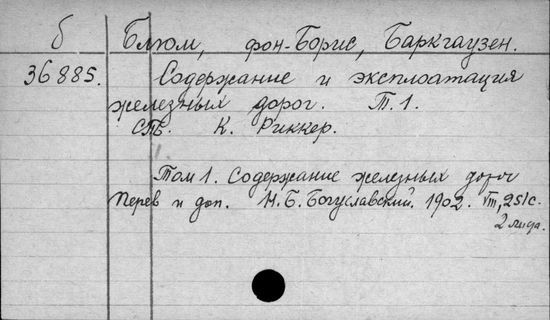 б Блюм, фон-Борис, Баркгаузен.
36885. Содержание и эксплоатация
железных дорог. Т. 1.
СПб. К. Риккер.
Том 1. Содержание железных дорог
Перев и доп. Н. Б. Богуславский. 1902. VIII, 251с.
2 лида.